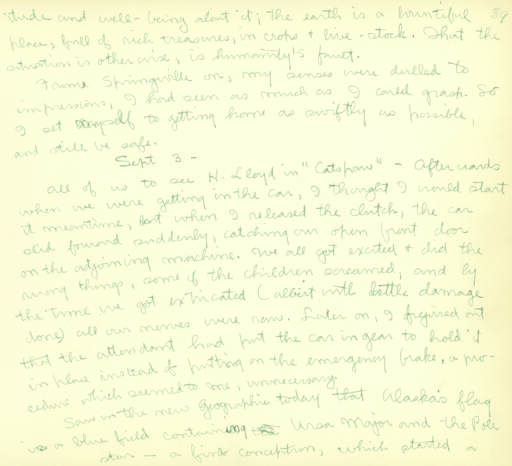 39
titude and well-being about it; the earth is a bountiful
place, full of rich treasures, in crops & live-stock. That the
situation is otherwise, is humanity's fault.
From Springville on, my senses were dulled to
impressions, I had seen as much as I could grasp. So
I set myself to getting home as swiftly as possible,
and still be safe.
Sept 3 -
All of us to see H. Lloyd in "Catspaw" - Afterwards
when we were getting in the car, I thought I would start
it meantime, but when I released the clutch, the car
slid forward suddenly, catching our open front door
on the adjoining machine. We all got excited & did the
wrong things, some of the children screamed, and by
the time we got extricated (albeit with little damage
done) all our nerves were raw. Later on, I figured out
that the attendant had put the car in gear to hold it
in place instead of putting on the emergency brake, a pro-
cedure which seemed to me, unnecessary.
Saw in the new Geographic today that Alaska's flag
is a blue field containing Ursa Major and the Pole
star - a fine conception, which started a